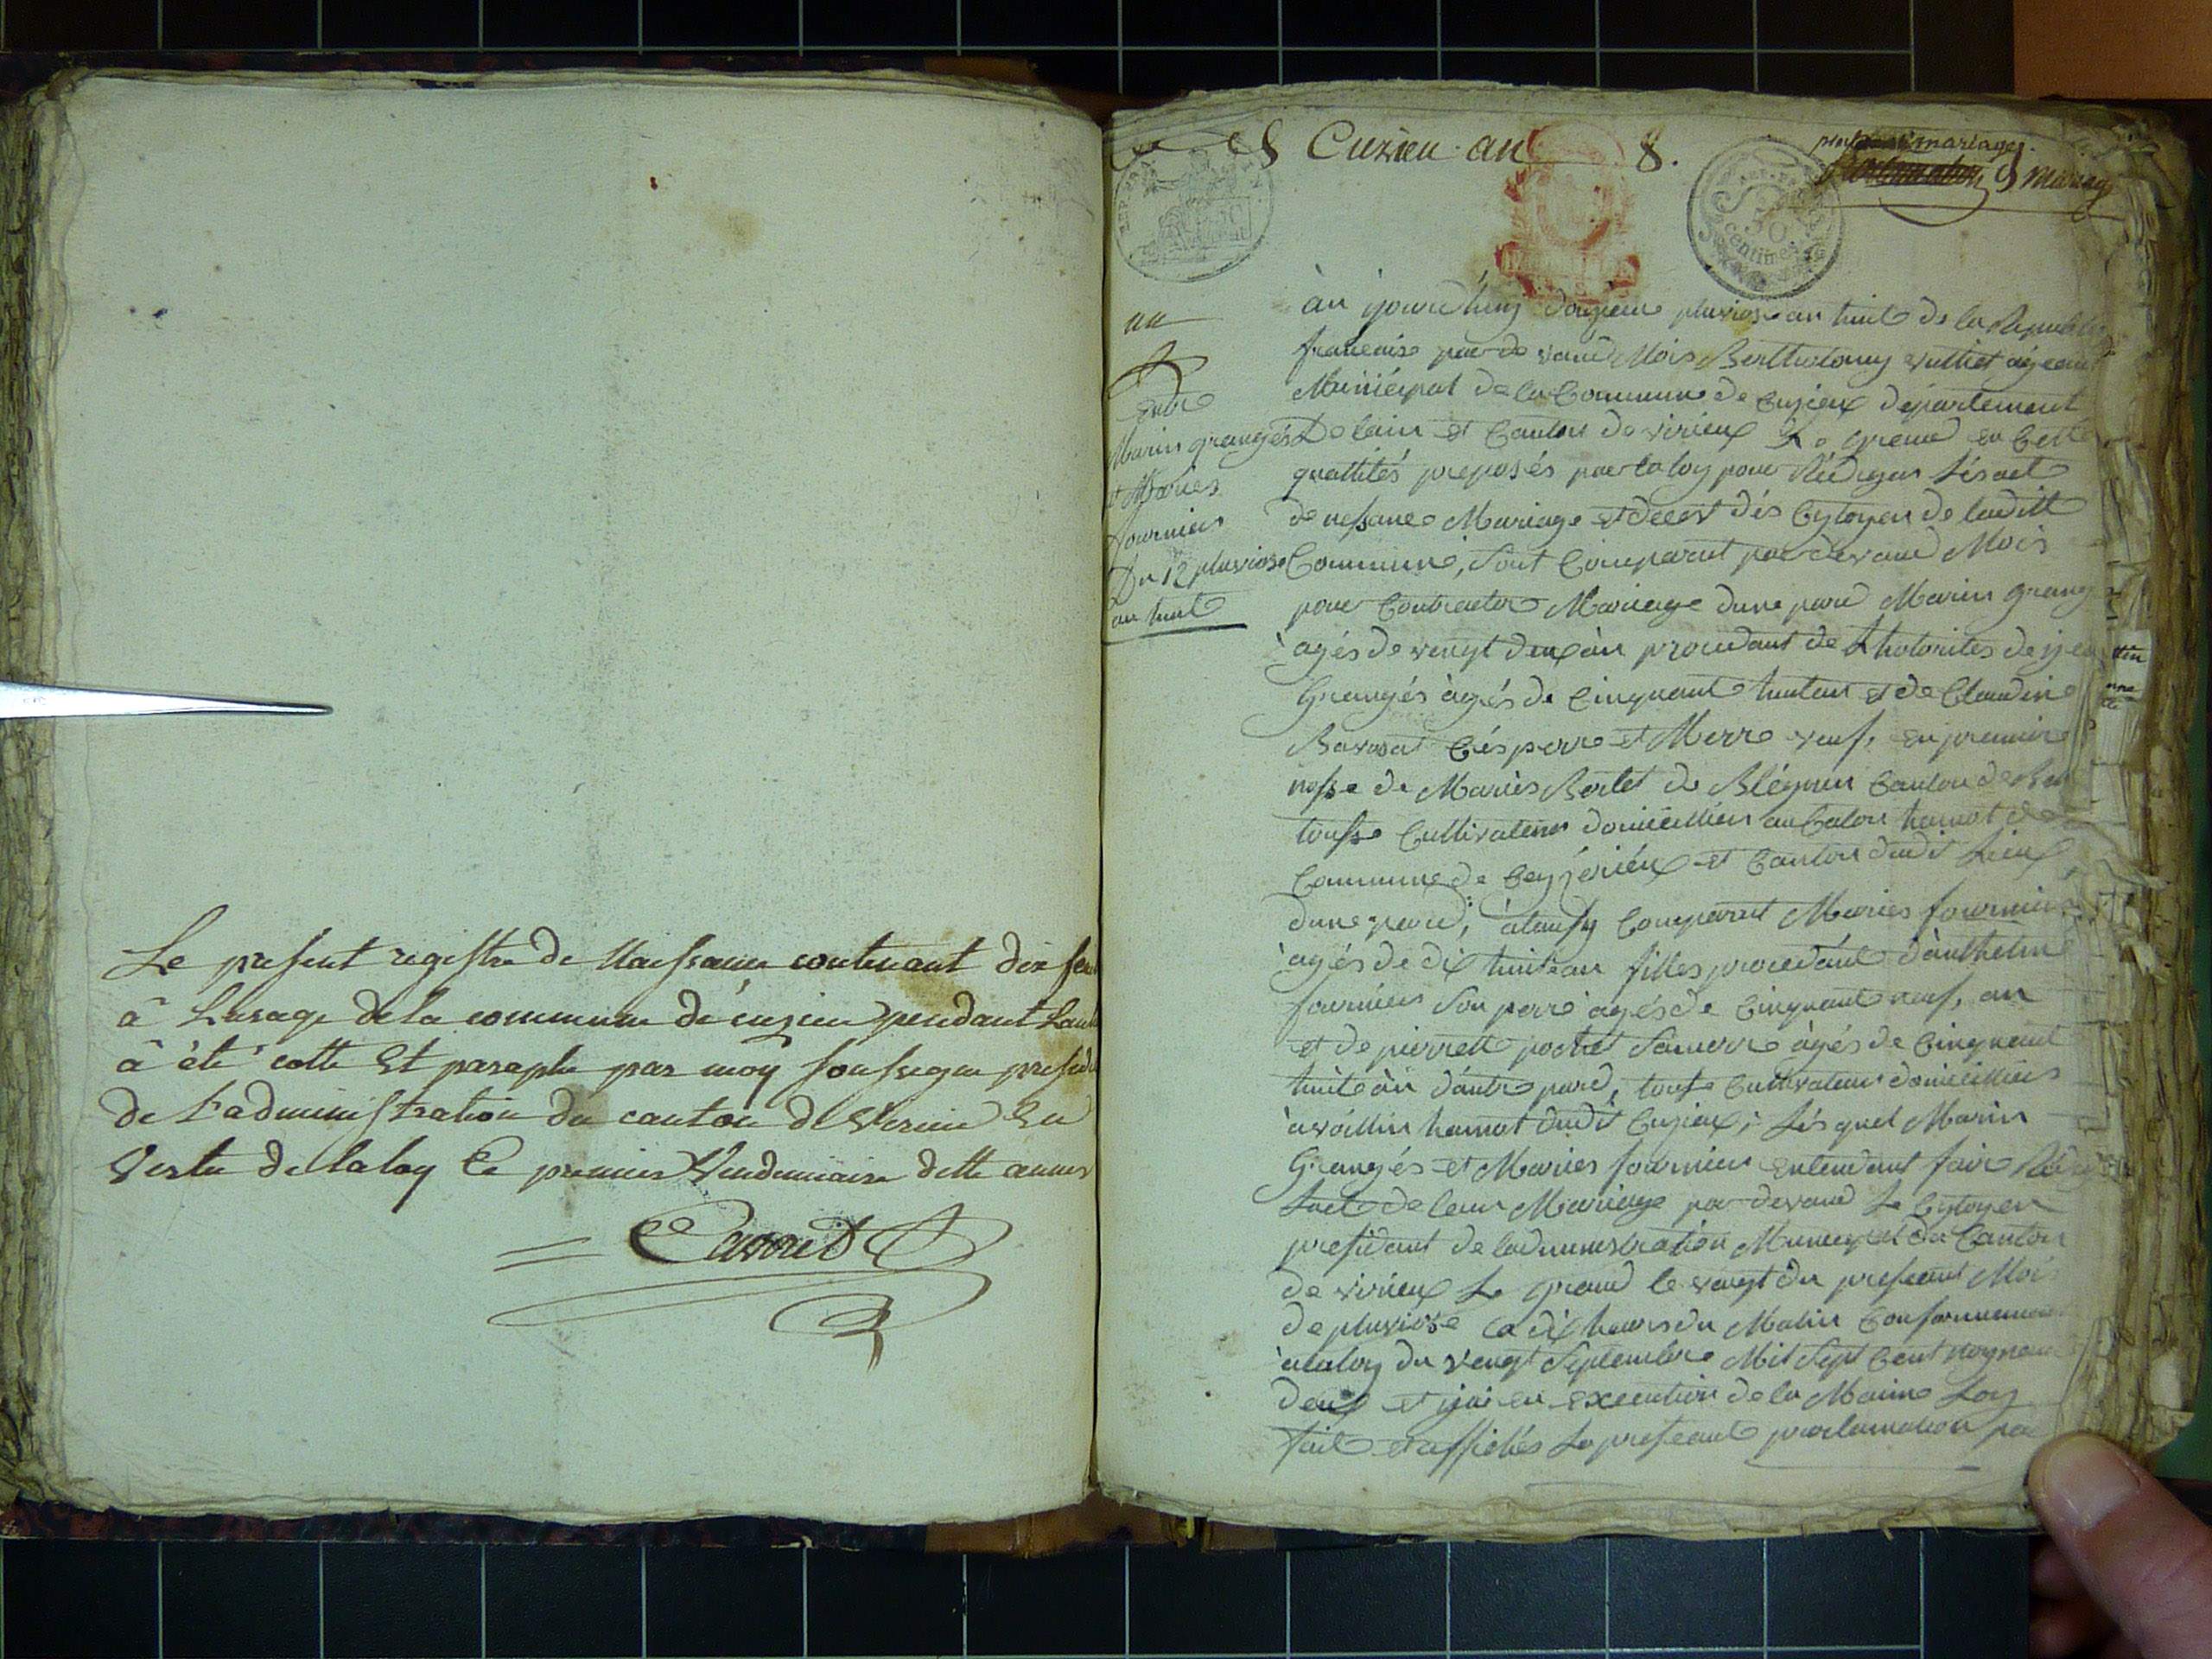 Le present registre de Naissance contenant dix
à Lusage de la commune de cuzieu pendant
à été cotté Et paraphé par moy soussigné
de L'administration du canton de Virieu En
Vertu de la loy Ce premier Vendemiaire ditte année
Cuzieu an 8.
mariages.
mariages
50
centimes
un
Entre
Marin granges
et Maries
fournier
Du 12 pluviose
an huit
àu jourd'huy douzieme pluviose an huit de la
francaise par de vand Mois Bertholomy vulliet
Municipal de la Commune de Cuzieux département
De lain et Canton de virieux Le grand en Cette
quallités preposés par la loy pour Rédiger Lés act
de nessance Mariage et decest dés Cytoyen de laditt
Commune, Sont Comparut par devand Mois
pour Contracter Mariage dune pard Marin
àgés de vengt deux àn procedant de Lhotorites de
Grangés àgés de Cinquant huitan et de Claudine
Cés perre et Merre veuf, en premiere
nosse de Mariés Berlet de Canton de
tousse Cultivateur domicilliés au hamot de
Commune de Ceyzérieux et Canton dudit Lieux
dune pard, Comparut Maries fournier
àgés de dix huit an filles procedant d'anthelme
fournier Son perre àgés de Cinquant neuf, an
et de pierrett pochet Samerre àgés de Cinquant
huite àn dautre pard, tousse Cultivateur domicilliés
à hamot dudit Cuzieux, Lésquel Marin
Grangés et Maries fournier entendant fair
Lact de leur Mariage par devand Le Cytoyen
president de ladministration Municipal du Canton
de virieux Le grand le vengt du preseant Mois
de pluviose a dix heurs du Matin Conformement
àlaloy du vengt Septembre Mil Sept Cent
deux et en execution de la Maime Loy
fait et affichés La preseant proclamation par